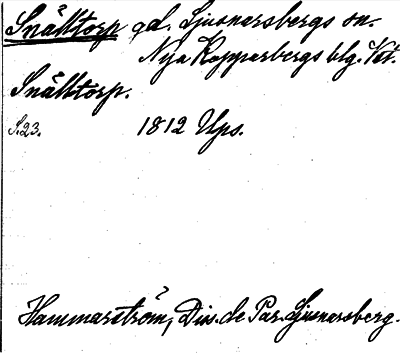 Snålltorp gd. Ljusnarsbergs sn.
Nya Kopparbergs blg. Vstm.
Snålltorp.
S.23. 1812 Ups.
Hammarström, Diss. de Par. Ljusnarsberg.